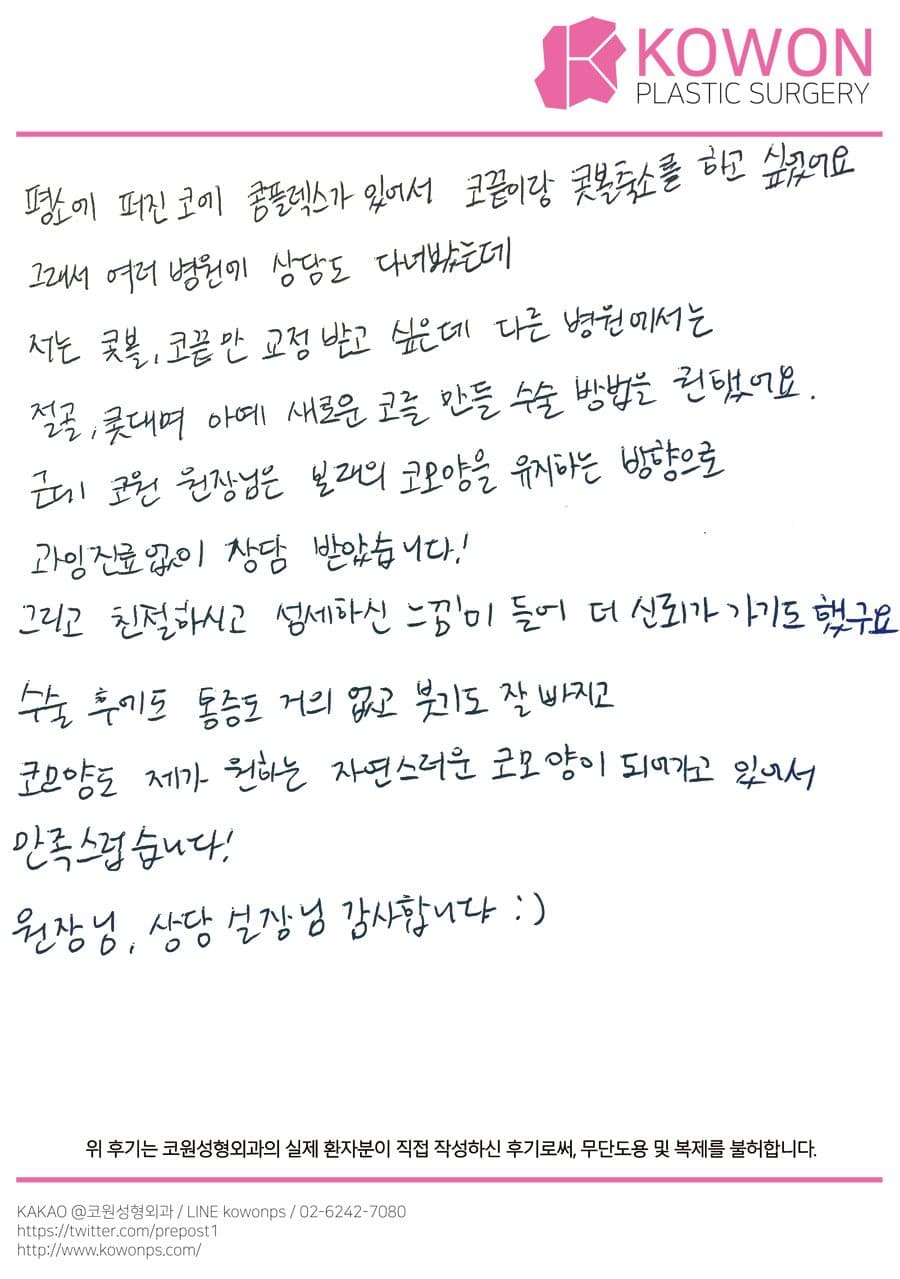 KOWON
PLASTIC SURGERY
평소에 퍼진 코에 콤플렉스가 있어서 코끝이랑 콧볼축소를 하고 싶었어요
그래서 여러 병원에 상담도 다녀봤는데
저는 콧볼, 코끝만 교정 받고 싶은데 다른 병원에서는
절골, 콧대며 아예 새로운 코를 만들 수술 방법을 권했어요.
근데 코원 원장님은 본래의 코모양을 유지하는 방향으로
과잉진료없이 상담 받았습니다!
그리고 친절하시고 섬세하신 느낌이 들어 더 신뢰가 가기도 했구요
수술 후에도 통증도 거의 없고 붓기도 잘 빠지고
코모양도 제가 원하는 자연스러운 코모양이 되어가고 있어서
만족스럽습니다!
원장님, 상담 실장님 감사합니다 :)
위 후기는 코원성형외과의 실제 환자분이 직접 작성하신 후기로써, 무단도용 및 복제를 불허합니다.
KAKAO @코원성형외과 / LINE kowonps / 02-6242-7080
https://twitter.com/prepost1
http://www.kowonps.com/